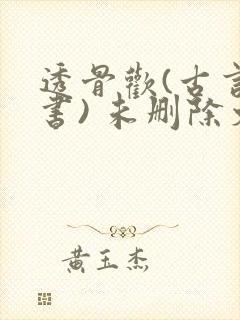 透骨歡(古言
書)未删除
黄玉杰